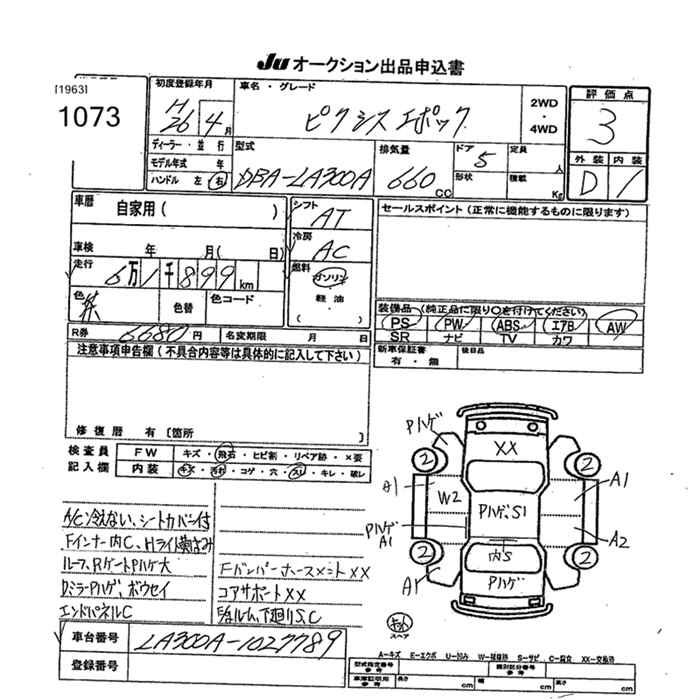 Ju オークション出品申込書
[1963]
1073
初度登録年月
H26 4月
車名・グレード
ピクシスエポック
2WD
・
4WD
評価点
3
ディーラー・並行
モデル年式 年
ハンドル 左・右
型式
DBA-LA300A
排気量
660 CC
ドア
5
形状
定員
人
積載
Kg
外装 内装
D 1
車暦
自家用( )
シフト
AT
セールスポイント(正常に機能するものに限ります)
冷房
AC
車検 年 月( 日)
走行
6万1千899km
燃料
ガソリン
軽油
( )
色
色替
色コード
装備品(純正品に限り○を付けてください)
PS PW ABS エアB AW
SR ナビ TV カワ
R券 6680円
名変期限 月 日
新車保証書
有・無
後日品
注意事項申告欄(不具合内容等は具体的に記入して下さい)
修復歴 有[箇所 ]
検査員
記入欄
FW キズ・飛石・ヒビ割・リペア跡・×要
内装 キズ・汚れ・コゲ・穴・スレ・キレ・破レ
A/C冷えない、シートカバー付
Fインナー内C、Hライト黄ばみ
ルーフ、RゲートPハゲ大
DミラーPハゲ、ボウセイ
エンドパネルC
FバンパーホースメントXX
コアサポートXX
下廻りS,C
Pハゲ
2
XX
2
A1
W2
Pハゲ、S1
A1
Pハゲ
A1
A2
2
内S
2
A1
Pハゲ
キット
スペア
車台番号
LA300A-1027789
登録番号
A-キズ E-エクボ U-凹み W-補修跡 S-サビ C-腐食 XX-交換済
型式指定番号
参考
類別区分番号
参考
車庫証明用
参考
長さ cm
幅 cm
高さ cm